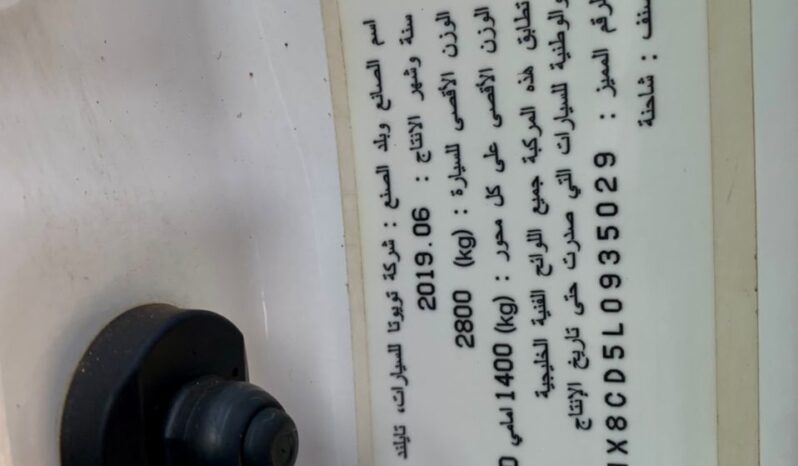 اسم الصانع وبلد الصنع : شركة تويوتا للسيارات، تايلند
سنة وشهر الانتاج : 2019.06
الوزن الأقصى للسيارة : 2800 (kg)
الوزن الأقصى على كل محور : (kg) 1400 امامي
تطابق هذه المركبة جميع اللوائح الفنية الخليجية
والوطنية للسيارات التي صدرت حتى تاريخ الإنتاج
الرقم المميز : X8CD5L0935029
صنف : شاحنة